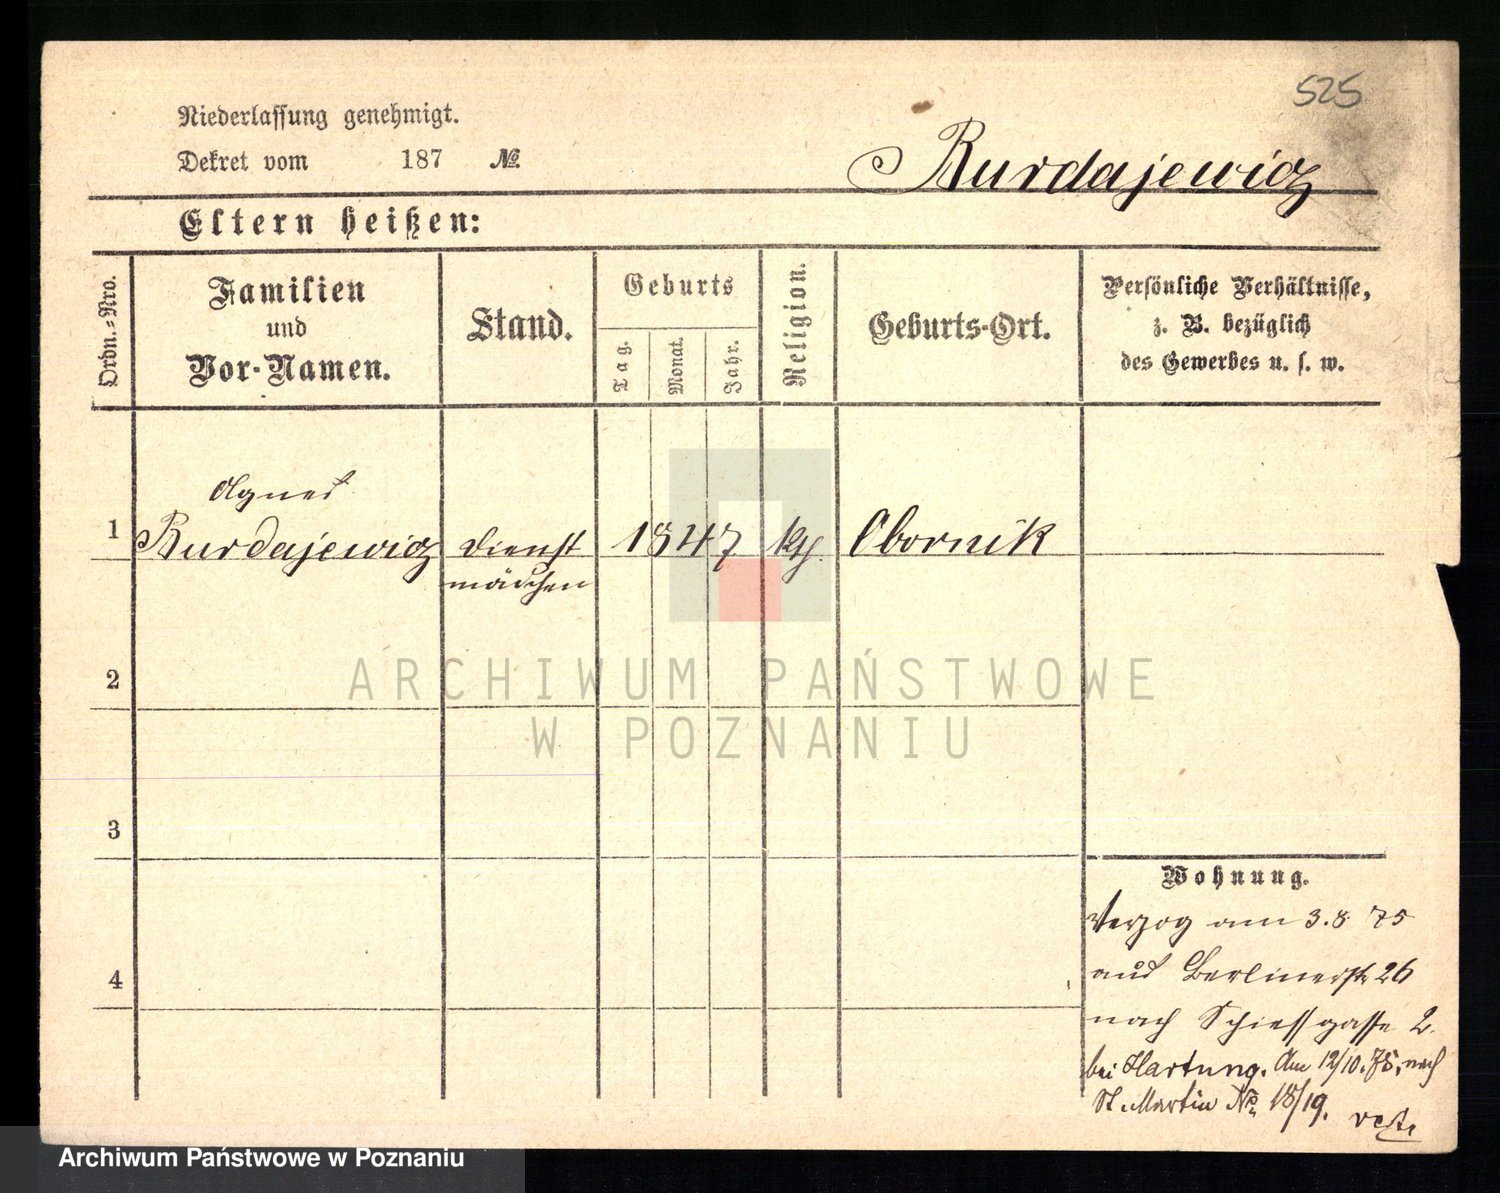 525
Niederlassung genehmigt.
Dekret vom 187 №
Burdajewicz
Eltern heißen:
Ordn.-Nro.
Familien
und
Vor-Namen.
Stand.
Geburts
Tag.
Monat.
Jahr.
Religion.
Geburts-Ort.
Persönliche Verhältnisse,
z. B. bezüglich
des Gewerbes u. s. w.
Agnes
1 Burdajewicz Dienst 1847 kth. Obornik
mädchen
2
ARCHIWUM PAŃSTWOWE
W POZNANIU
3
Wohnung.
Verzog am 3.8 75
aus Berlinerstr 26
4
nach Schiessgasse 2.
bei Hartung. Am 12/10.75, nach
St. Martin No. 18/19.
Archiwum Państwowe w Poznaniu